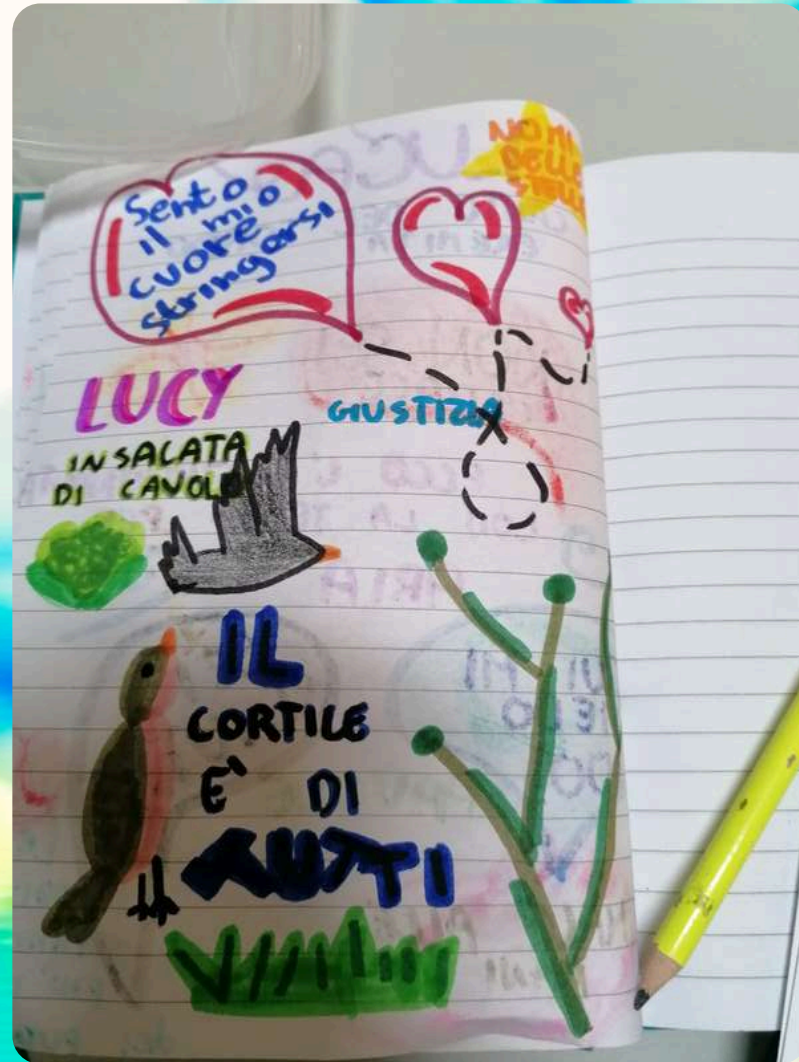 Sento
il mio
cuore
stringersi
NOMI
DELLE
STELLE
LUCY
GIUSTIZIA
INSALATA
DI CAVOLO
IL
CORTILE
E' DI
TUTTI